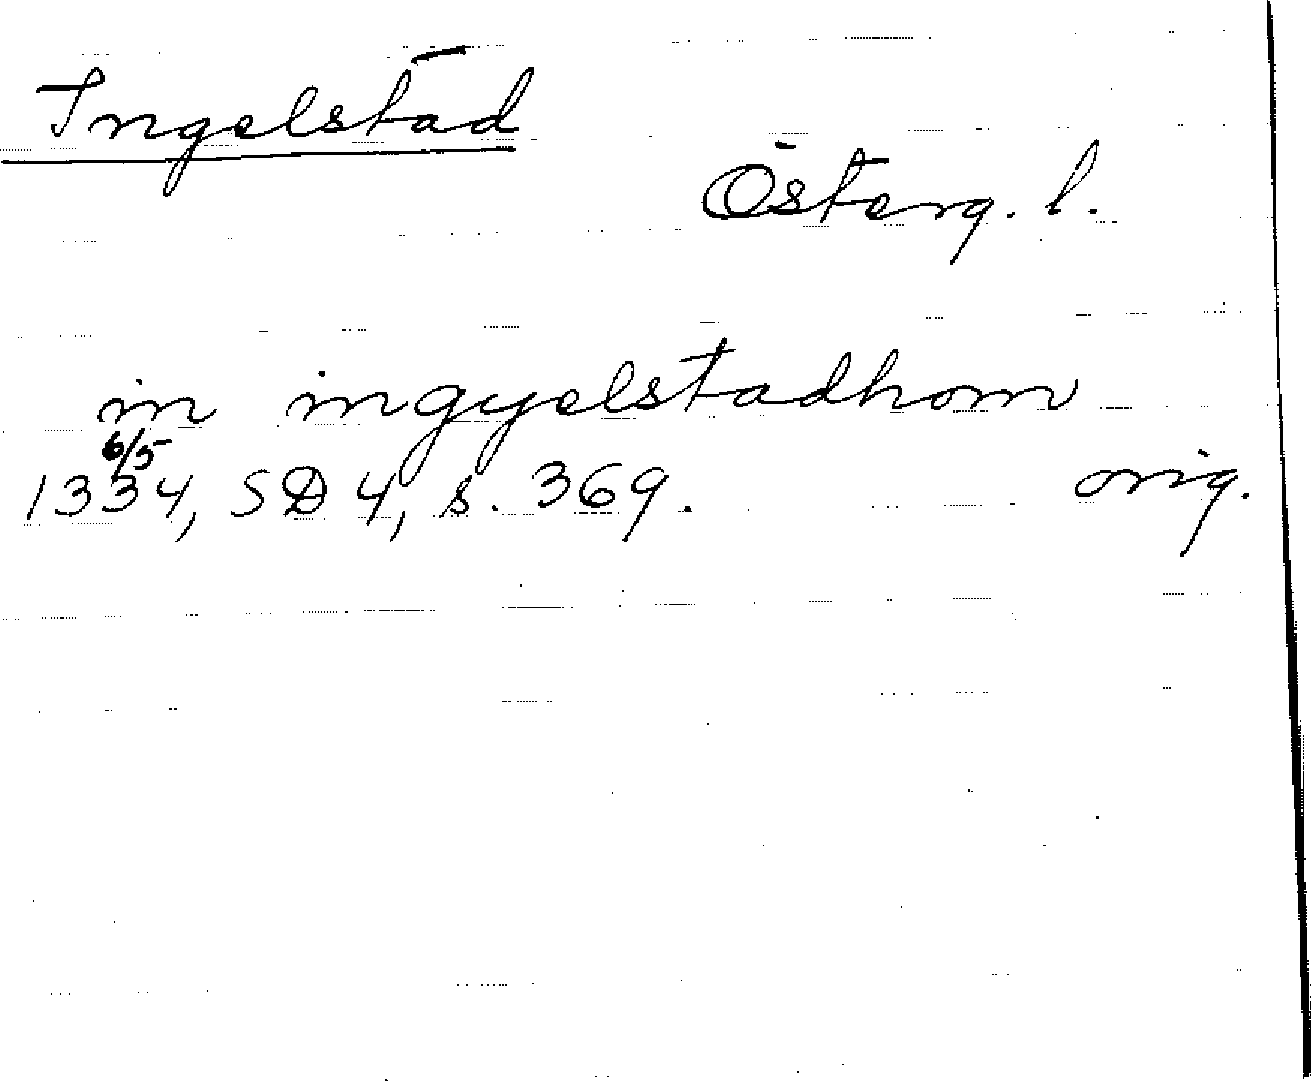 Ingelstad
Österg. l.
in ingyelstadhom
6/5
1334, SD 4, s. 369. orig.